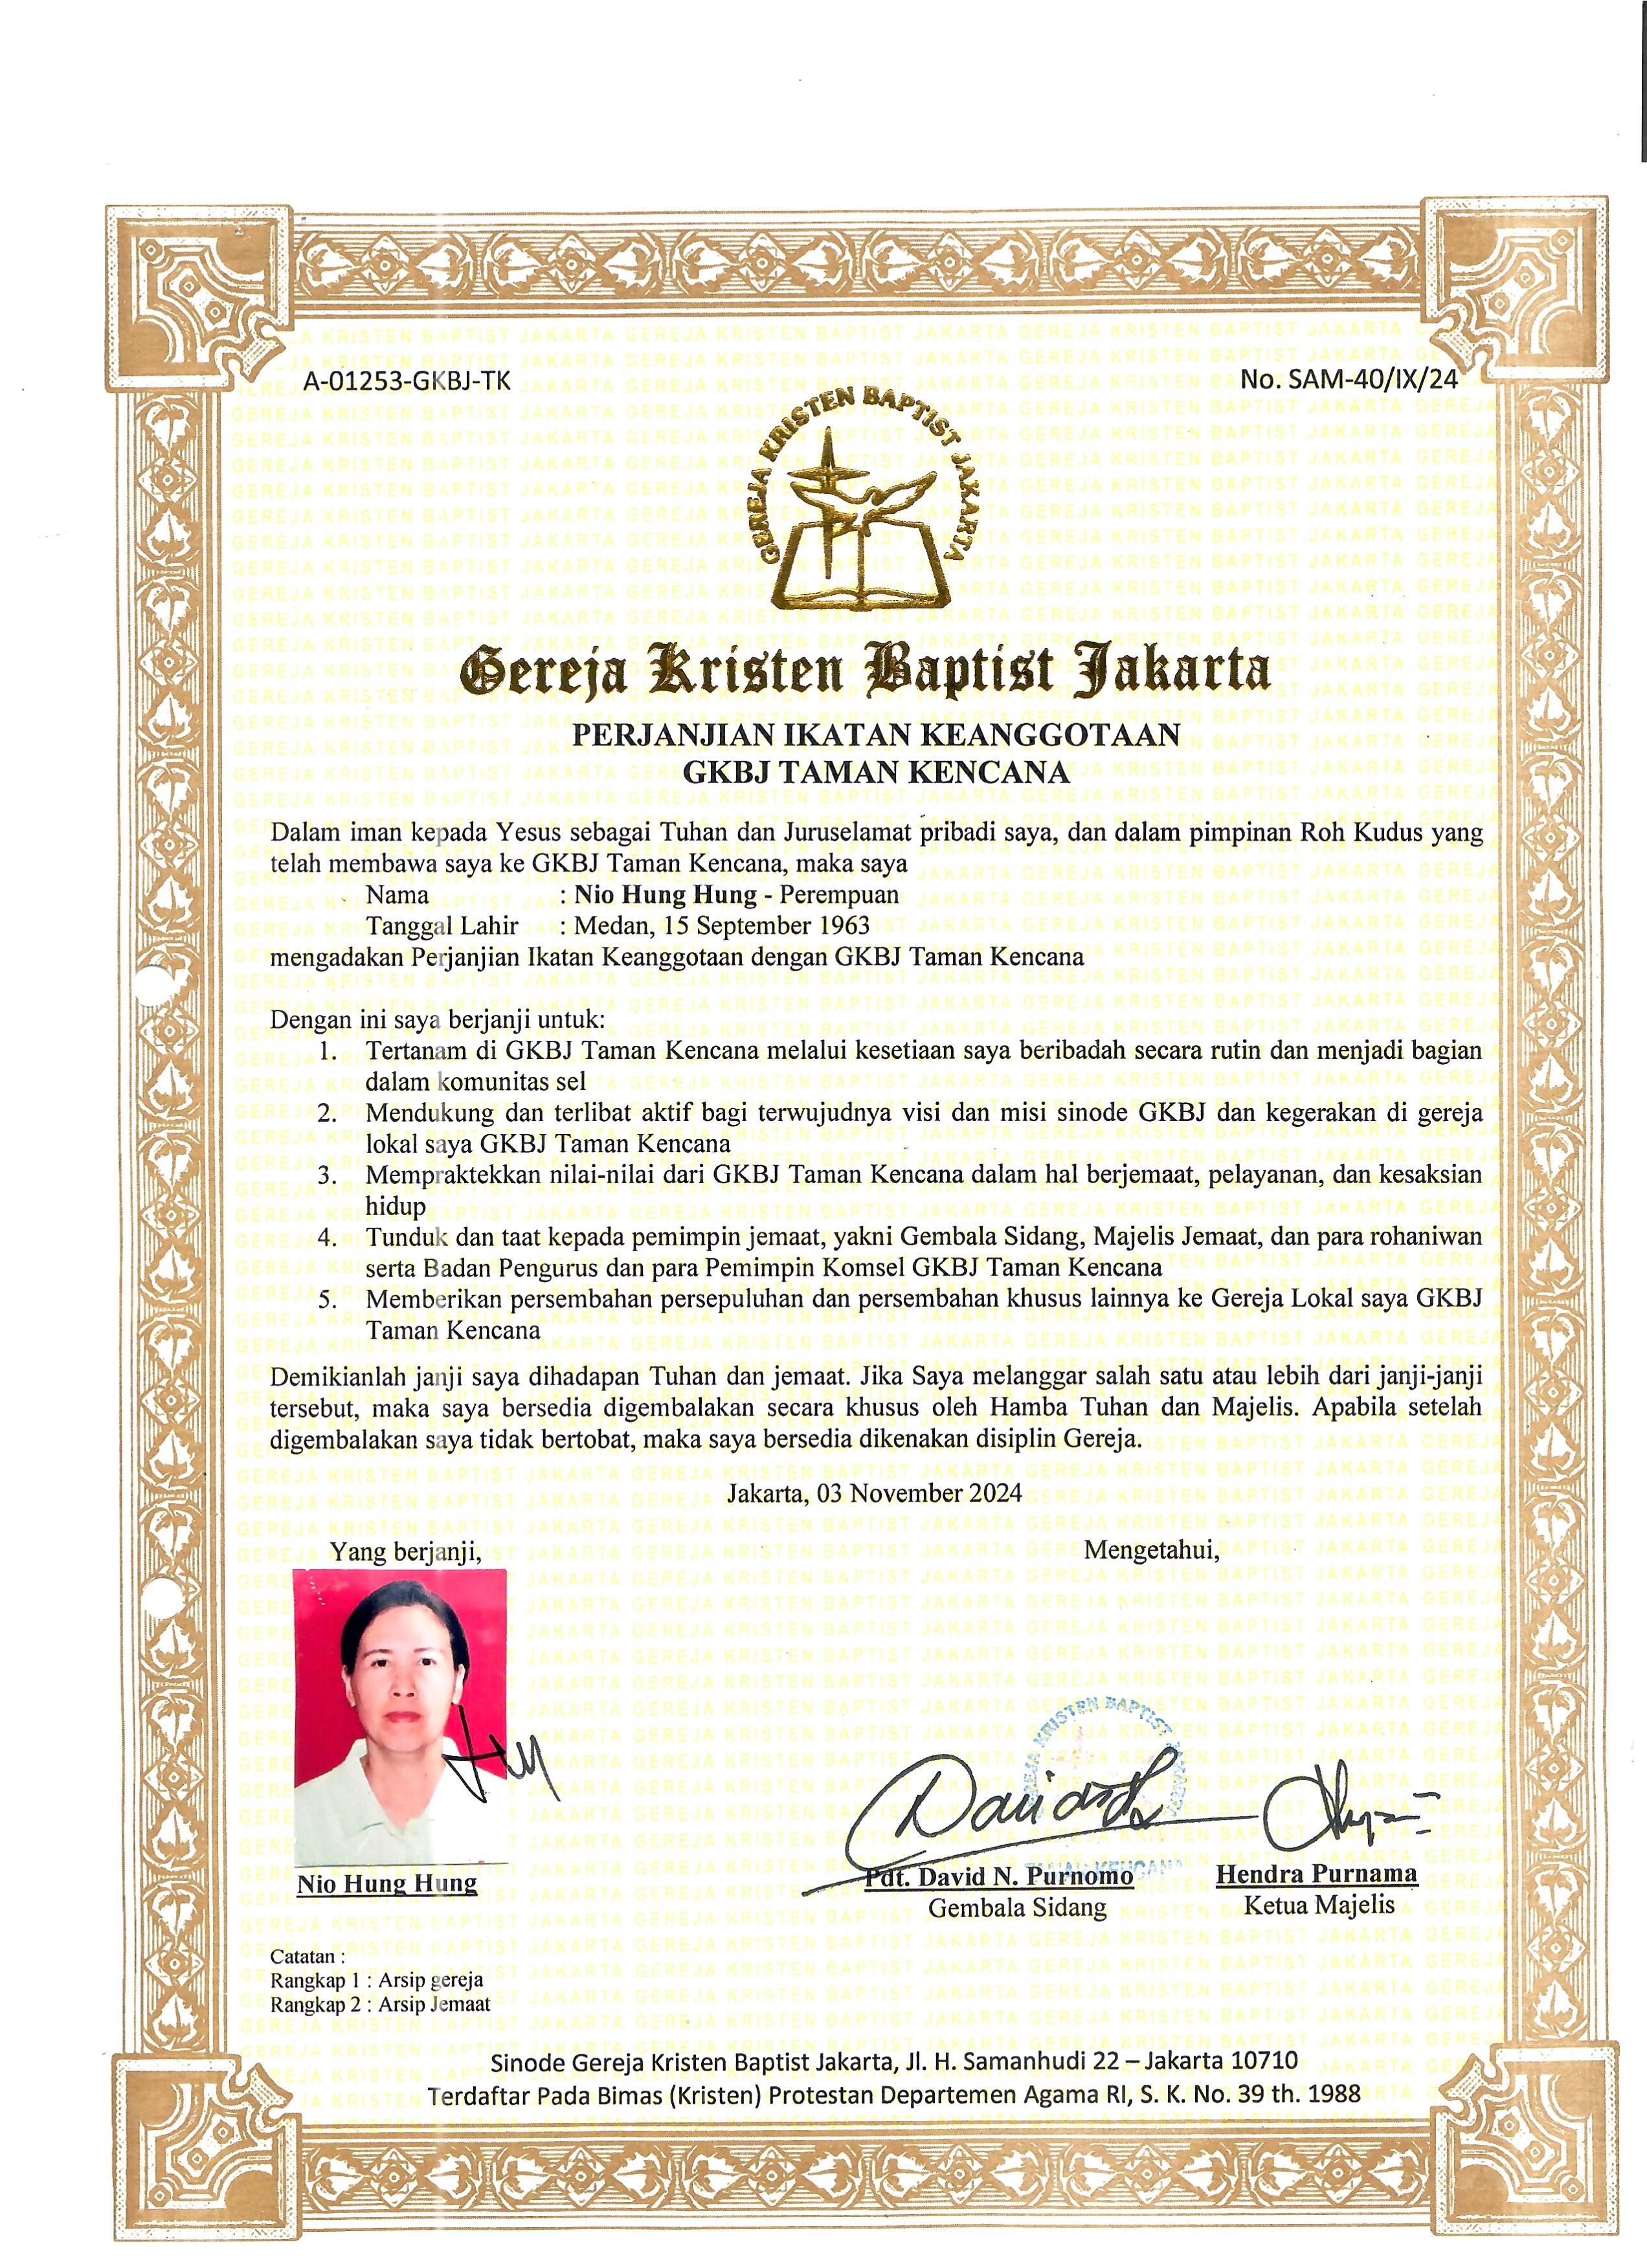 A-01253-GKBJ-TK
No. SAM-40/IX/24
GEREJA KRISTEN BAPTIST JAKARTA
Gereja Kristen Baptist Jakarta
PERJANJIAN IKATAN KEANGGOTAAN
GKBJ TAMAN KENCANA
Dalam iman kepada Yesus sebagai Tuhan dan Juruselamat pribadi saya, dan dalam pimpinan Roh Kudus yang
telah membawa saya ke GKBJ Taman Kencana, maka saya
Nama : Nio Hung Hung - Perempuan
Tanggal Lahir : Medan, 15 September 1963
mengadakan Perjanjian Ikatan Keanggotaan dengan GKBJ Taman Kencana
Dengan ini saya berjanji untuk:
1. Tertanam di GKBJ Taman Kencana melalui kesetiaan saya beribadah secara rutin dan menjadi bagian
dalam komunitas sel
2. Mendukung dan terlibat aktif bagi terwujudnya visi dan misi sinode GKBJ dan kegerakan di gereja
lokal saya GKBJ Taman Kencana
3. Mempraktekkan nilai-nilai dari GKBJ Taman Kencana dalam hal berjemaat, pelayanan, dan kesaksian
hidup
4. Tunduk dan taat kepada pemimpin jemaat, yakni Gembala Sidang, Majelis Jemaat, dan para rohaniwan
serta Badan Pengurus dan para Pemimpin Komsel GKBJ Taman Kencana
5. Memberikan persembahan persepuluhan dan persembahan khusus lainnya ke Gereja Lokal saya GKBJ
Taman Kencana
Demikianlah janji saya dihadapan Tuhan dan jemaat. Jika Saya melanggar salah satu atau lebih dari janji-janji
tersebut, maka saya bersedia digembalakan secara khusus oleh Hamba Tuhan dan Majelis. Apabila setelah
digembalakan saya tidak bertobat, maka saya bersedia dikenakan disiplin Gereja.
Jakarta, 03 November 2024
Yang berjanji,
Mengetahui,
GEREJA KRISTEN BAPTIST JAKARTA
TAMAN KENCANA
Nio Hung Hung
Pdt. David N. Purnomo
Hendra Purnama
Gembala Sidang
Ketua Majelis
Catatan :
Rangkap 1 : Arsip gereja
Rangkap 2 : Arsip Jemaat
Sinode Gereja Kristen Baptist Jakarta, Jl. H. Samanhudi 22 – Jakarta 10710
Terdaftar Pada Bimas (Kristen) Protestan Departemen Agama RI, S. K. No. 39 th. 1988